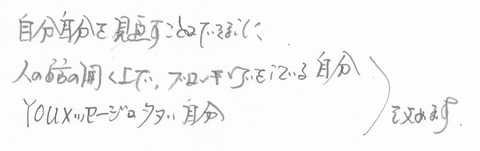 自分自分を見直すことができました
人の話の聞く上で、ブロッキングをしている自分
YOUメッセージの多い自分
を改めます。